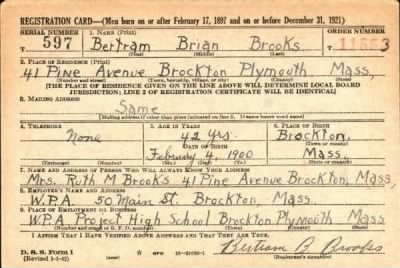 REGISTRATION CARD—(Men born on or after February 17, 1897 and on or before December 31, 1921)
SERIAL NUMBER 1. NAME (Print) ORDER NUMBER
597 Bertram Brian Brooks 3
(First) (Middle) (Last)
2. PLACE OF RESIDENCE (Print)
41 Pine Avenue Brockton Plymouth Mass,
(Number and street) (Town, township, village, or city) (County) (State)
[THE PLACE OF RESIDENCE GIVEN ON THE LINE ABOVE WILL DETERMINE LOCAL BOARD
JURISDICTION; LINE 2 OF REGISTRATION CERTIFICATE WILL BE IDENTICAL]
3. MAILING ADDRESS
Same
[Mailing address if other than place indicated on line 2. If same insert word same]
4. TELEPHONE 5. AGE IN YEARS 6. PLACE OF BIRTH
None 42 yrs. Brockton,
DATE OF BIRTH (Town or county)
February 4, 1900 Mass.
(Exchange) (Number) (Mo.) (Day) (Yr.) (State or country)
7. NAME AND ADDRESS OF PERSON WHO WILL ALWAYS KNOW YOUR ADDRESS
Mrs. Ruth M. Brooks 41 Pine Avenue Brockton, Mass.
8. EMPLOYER'S NAME AND ADDRESS
W.P.A. 50 Main St. Brockton, Mass.
9. PLACE OF EMPLOYMENT OR BUSINESS
W.P.A Project High School Brockton Plymouth Mass
(Number and street or R. F. D. number) (Town) (County) (State)
I AFFIRM THAT I HAVE VERIFIED ABOVE ANSWERS AND THAT THEY ARE TRUE.
D. S. S. Form 1
(Revised 1-1-42) GPO 16—21630-1 Bertram B. Brooks